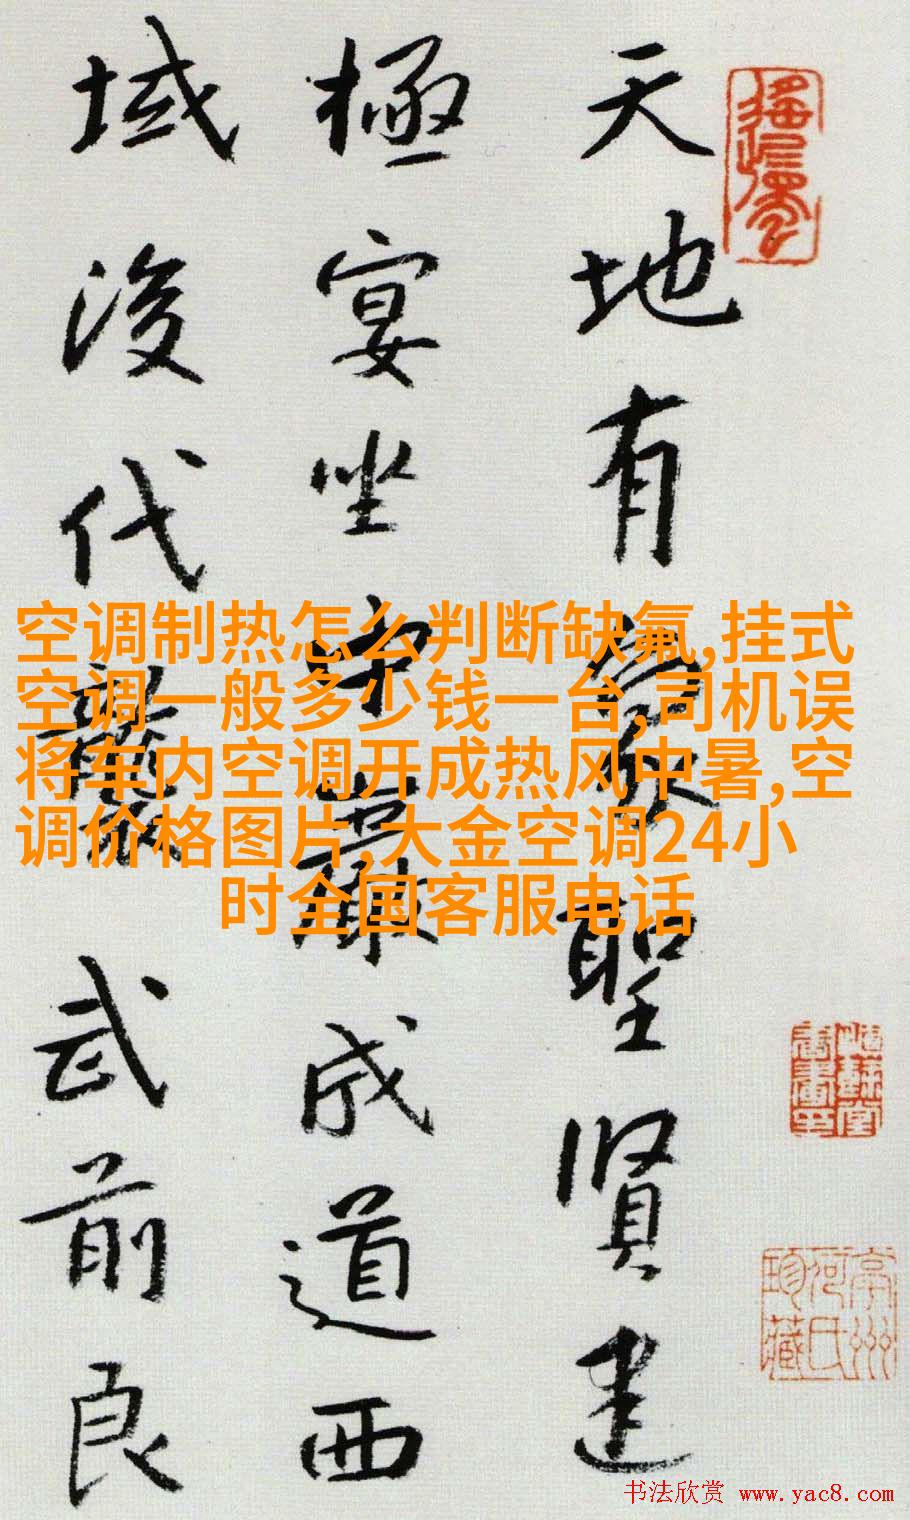 天地有象聖賢建
極宴坐中嚴成道西
域後代襲武前良
空调制热怎么判断缺氟,挂式
空调一般多少钱一台,司机误
将车内空调开成热风中暑,空
调价格图片,大金空调24小
时全国客服电话
亭州
何氏
珍藏
书法欣赏 www.yac8.com